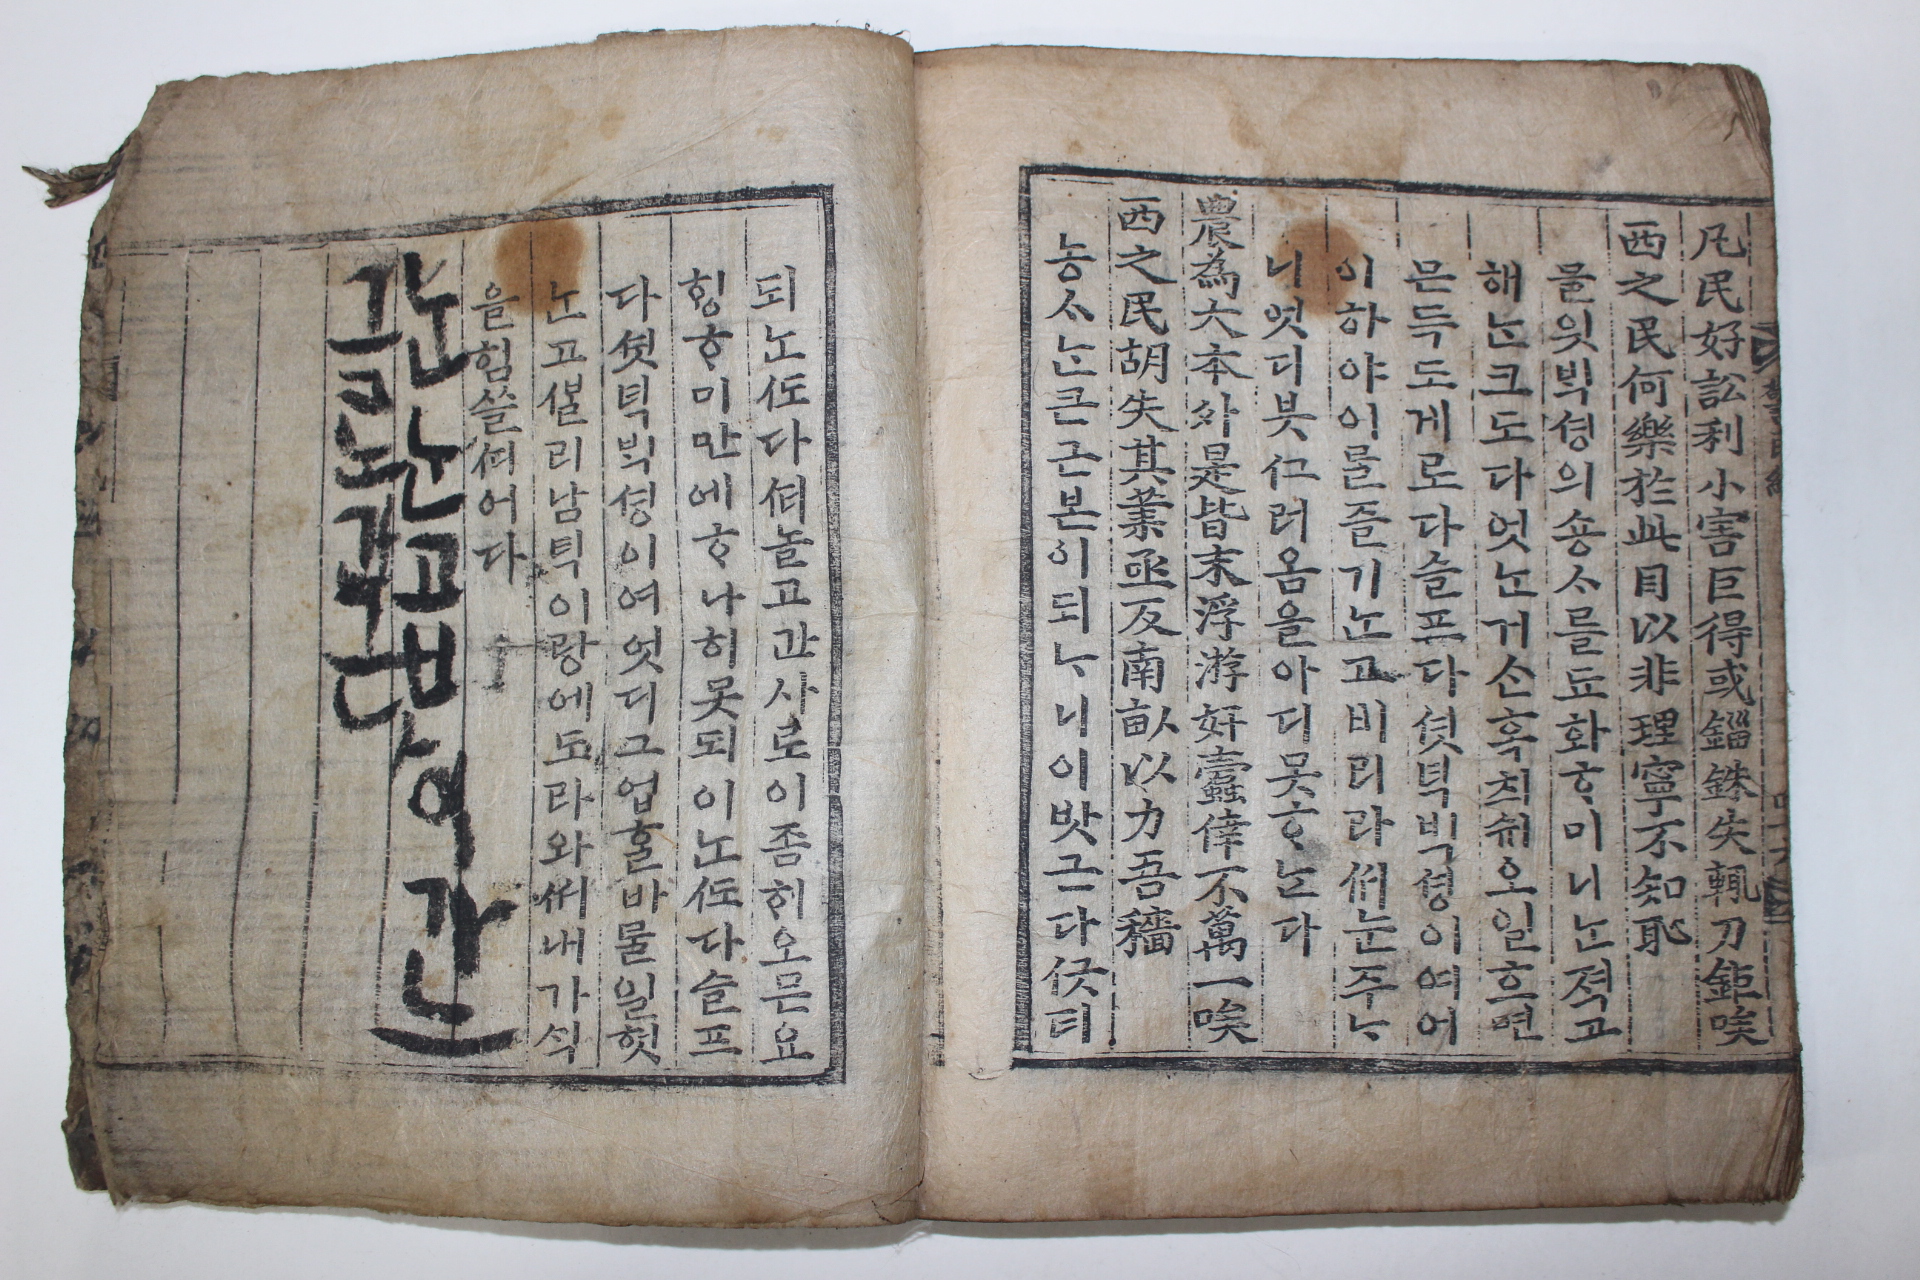 凡民好訟利小害巨得或錙銖失輒刀鉅唉
西之民何樂於此目以非理寧不知恥
믈읫ᄇᆡᆨ셩의숑ᄉᆞ를됴화ᄒᆞ미니ᄂᆞᆫ젹고
해ᄂᆞᆫ크도다엇ᄂᆞᆫ거ᄉᆞᆫ혹최쉬오일흐면
믄득도게로다슬프다셧ᄐᆞᆨᄇᆡᆨ셩이여어
이하야이ᄅᆞᆯ즐기ᄂᆞᆫ고비리라ᄡᅥ눈주ᄂᆞ
니엇디븟그러옴을아디못ᄒᆞᄂᆞᆫ다
農為大本外是皆末浮游奸蠹倖不萬一唉
西之民胡失其業亟反南畝以力吾穡
농ᄉᆞᄂᆞᆫ큰근본이되ᄂᆞ니이밧근다긋티
되노ᄯᅩ다ᄠᅥ놀고간사로이좀히오믄요
ᄒᆡᆼᄒᆞ미만에ᄒᆞ나히못되이노ᄯᅩ다슬프
다셧ᄐᆞᆨᄇᆡᆨ셩이여엇디그업홀바믈일헛
ᄂᆞᆫ고ᄲᆞᆯ리남ᄐᆡᆨ이랑에도라와ᄡᅥ내가ᄉᆡᆨ
을힘쓸ᄯᅵ어다